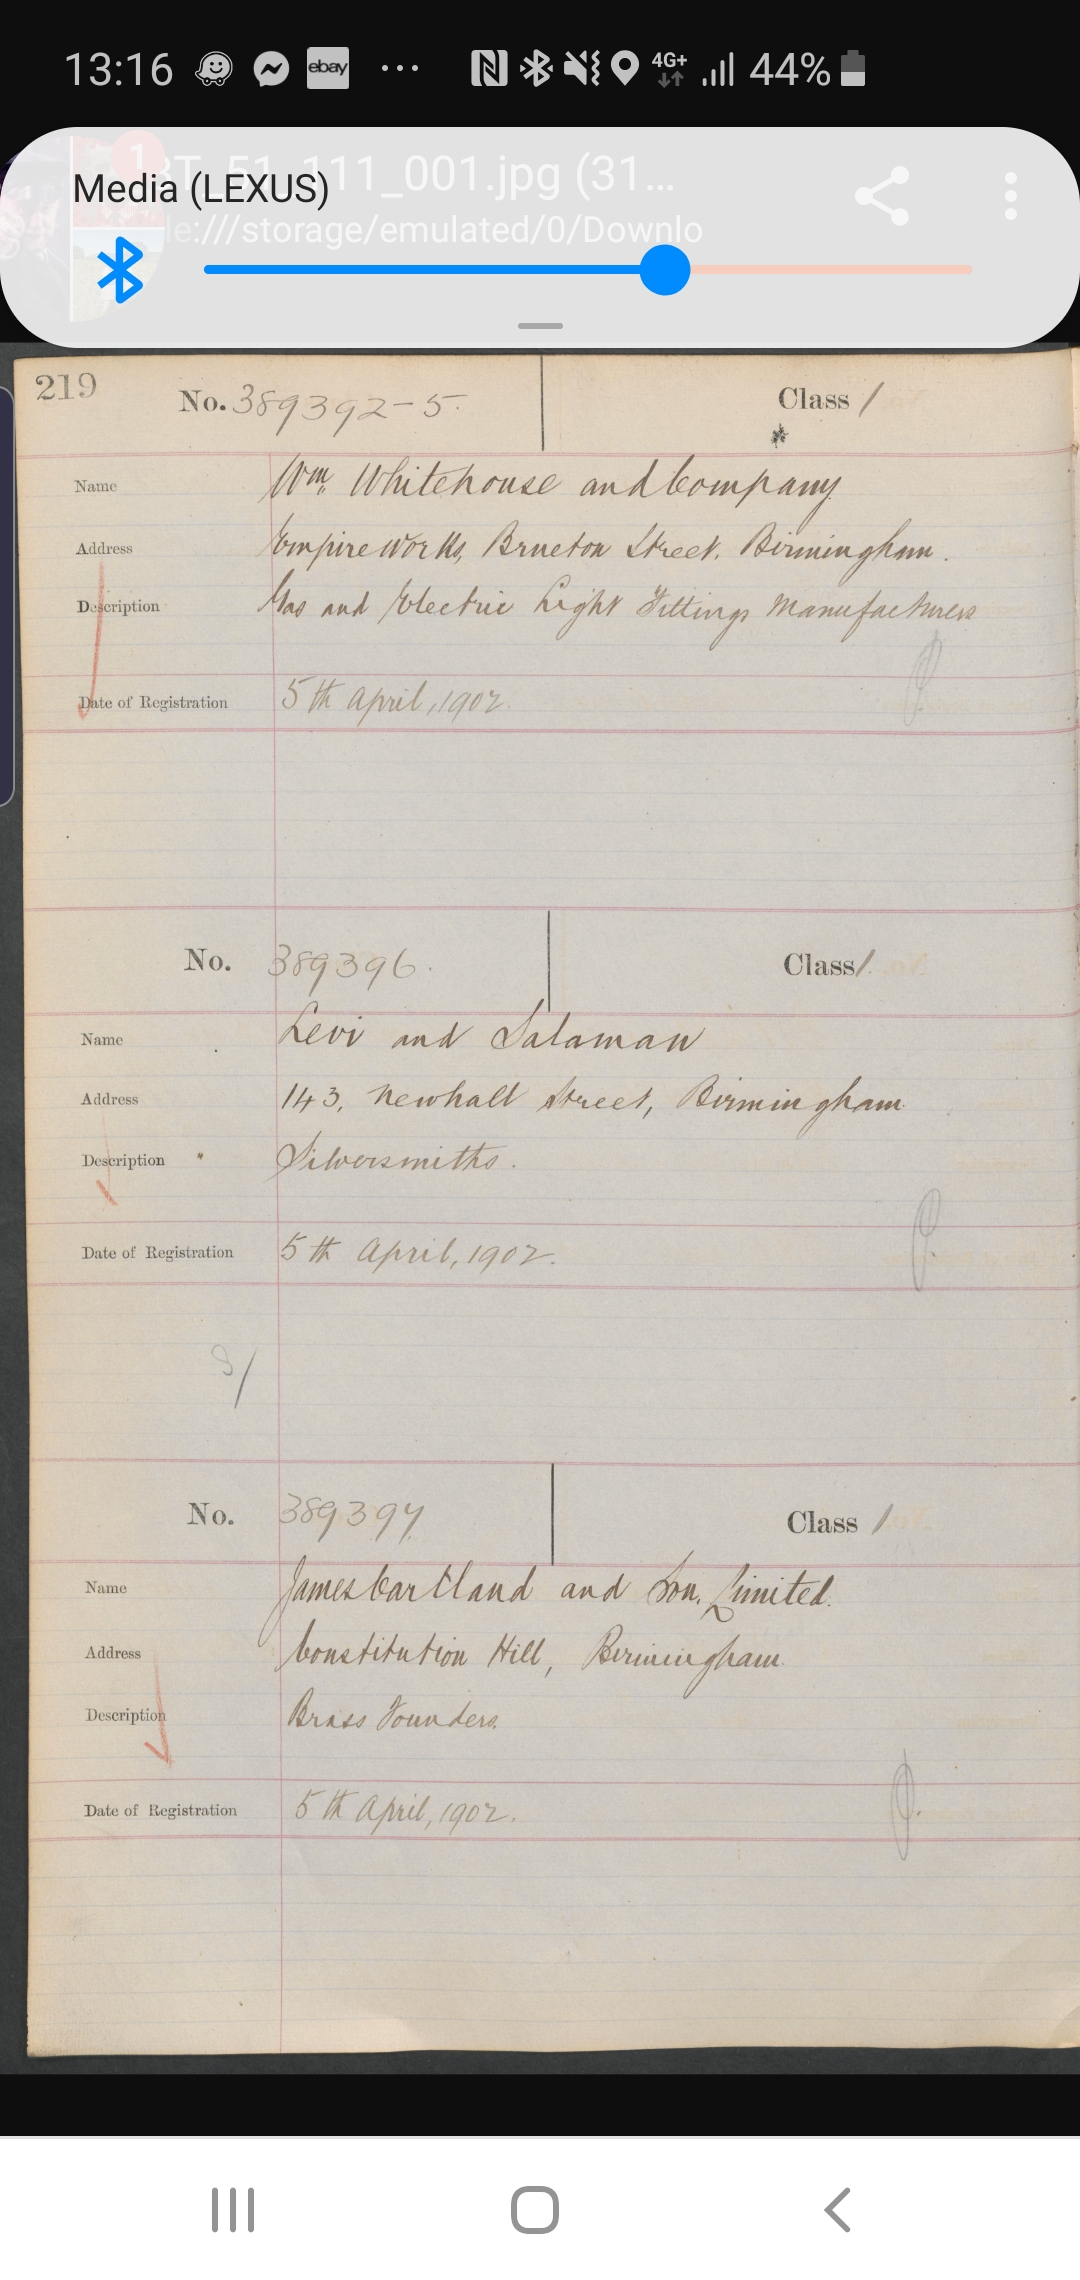 13:16 ebay 4G+ 44%
1
BT_51_111_001.jpg (31...
Media (LEXUS)
le:///storage/emulated/0/Downlo
219
No. 389392-5. Class 1
Name Wm. Whitehouse and Company
Address Empire Works, Brueton Street, Birmingham.
Description Gas and Electric Light Fittings Manufacturers
Date of Registration 5th April, 1902.
No. 389396. Class 1
Name Levi and Salaman
Address 143, Newhall Street, Birmingham
Description Silversmiths.
Date of Registration 5th April, 1902.
No. 389397 Class 1
Name James Cartland and Son, Limited.
Address Constitution Hill, Birmingham
Description Brass Founders
Date of Registration 5th April, 1902.